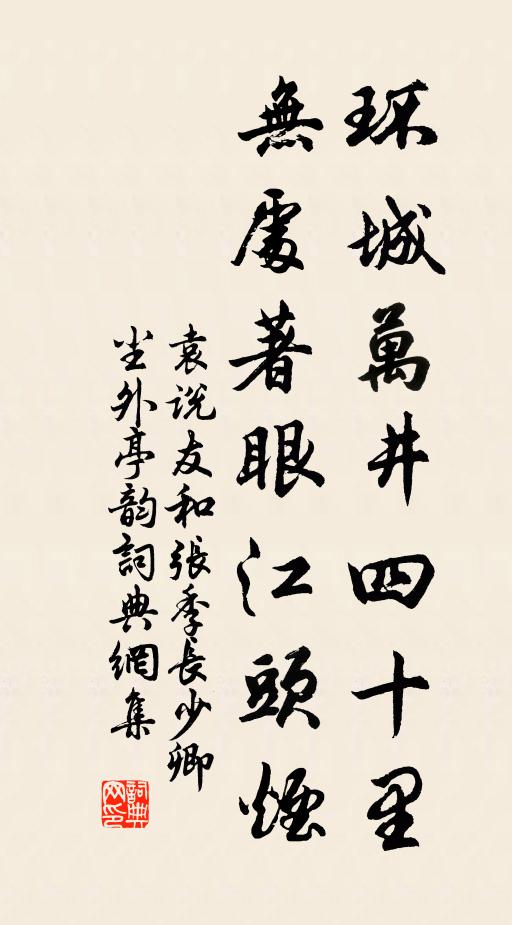 环城萬井四十里
無處著眼江頭煙
袁说友和張季長少卿
尘外亭韵詞典網集
詞典
网印